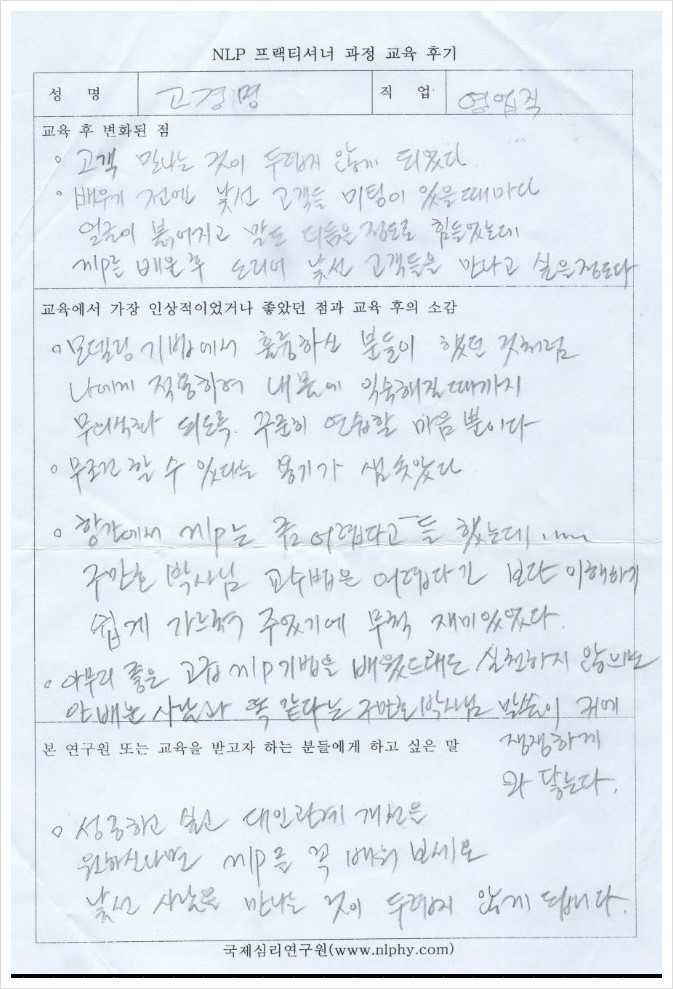 NLP 프랙티셔너 과정 교육 후기
성 명 고경명 직 업 영업직
교육 후 변화된 점
○ 고객 만나는 것이 두렵지 않게 되었다
○ 배우기 전엔 낯선 고객들 미팅이 있을때마다
얼굴이 붉어지고 말도 더듬을정도로 힘들었는데
nlp를 배운후 도리어 낯선 고객들을 만나고 싶을정도다
교육에서 가장 인상적이었거나 좋았던 점과 교육 후의 소감
○ 모델링 기법에서 훌륭하신 분들이 했던 것처럼
나에게 적용하여 내몸에 익숙해질때까지
무의식화 되도록 꾸준히 연습할 마음뿐이다
○ 무조건 할 수 있다는 용기가 샘솟았다
○ 항간에서 nlp는 좀 어렵다고 들 했는데....
주만호 박사님 교수법은 어렵다기 보단 이해하기
쉽게 가르쳐 주었기에 무척 재미있었다.
○ 아무리 좋은 고급 nlp기법을 배웠드래도 실천하지 않으면
안배운 사람과 똑 같다는 주만호박사님 말씀이 귀에
쟁쟁하게
와 닿는다.
본 연구원 또는 교육을 받고자 하는 분들에게 하고 싶은 말
○ 성공하고 싶고 대인관계 개선을
원하신다면 nlp를 꼭 배워 보세요
낯선 사람을 만나는 것이 두렵지 않게 됩니다.
국제심리연구원(www.nlphy.com)